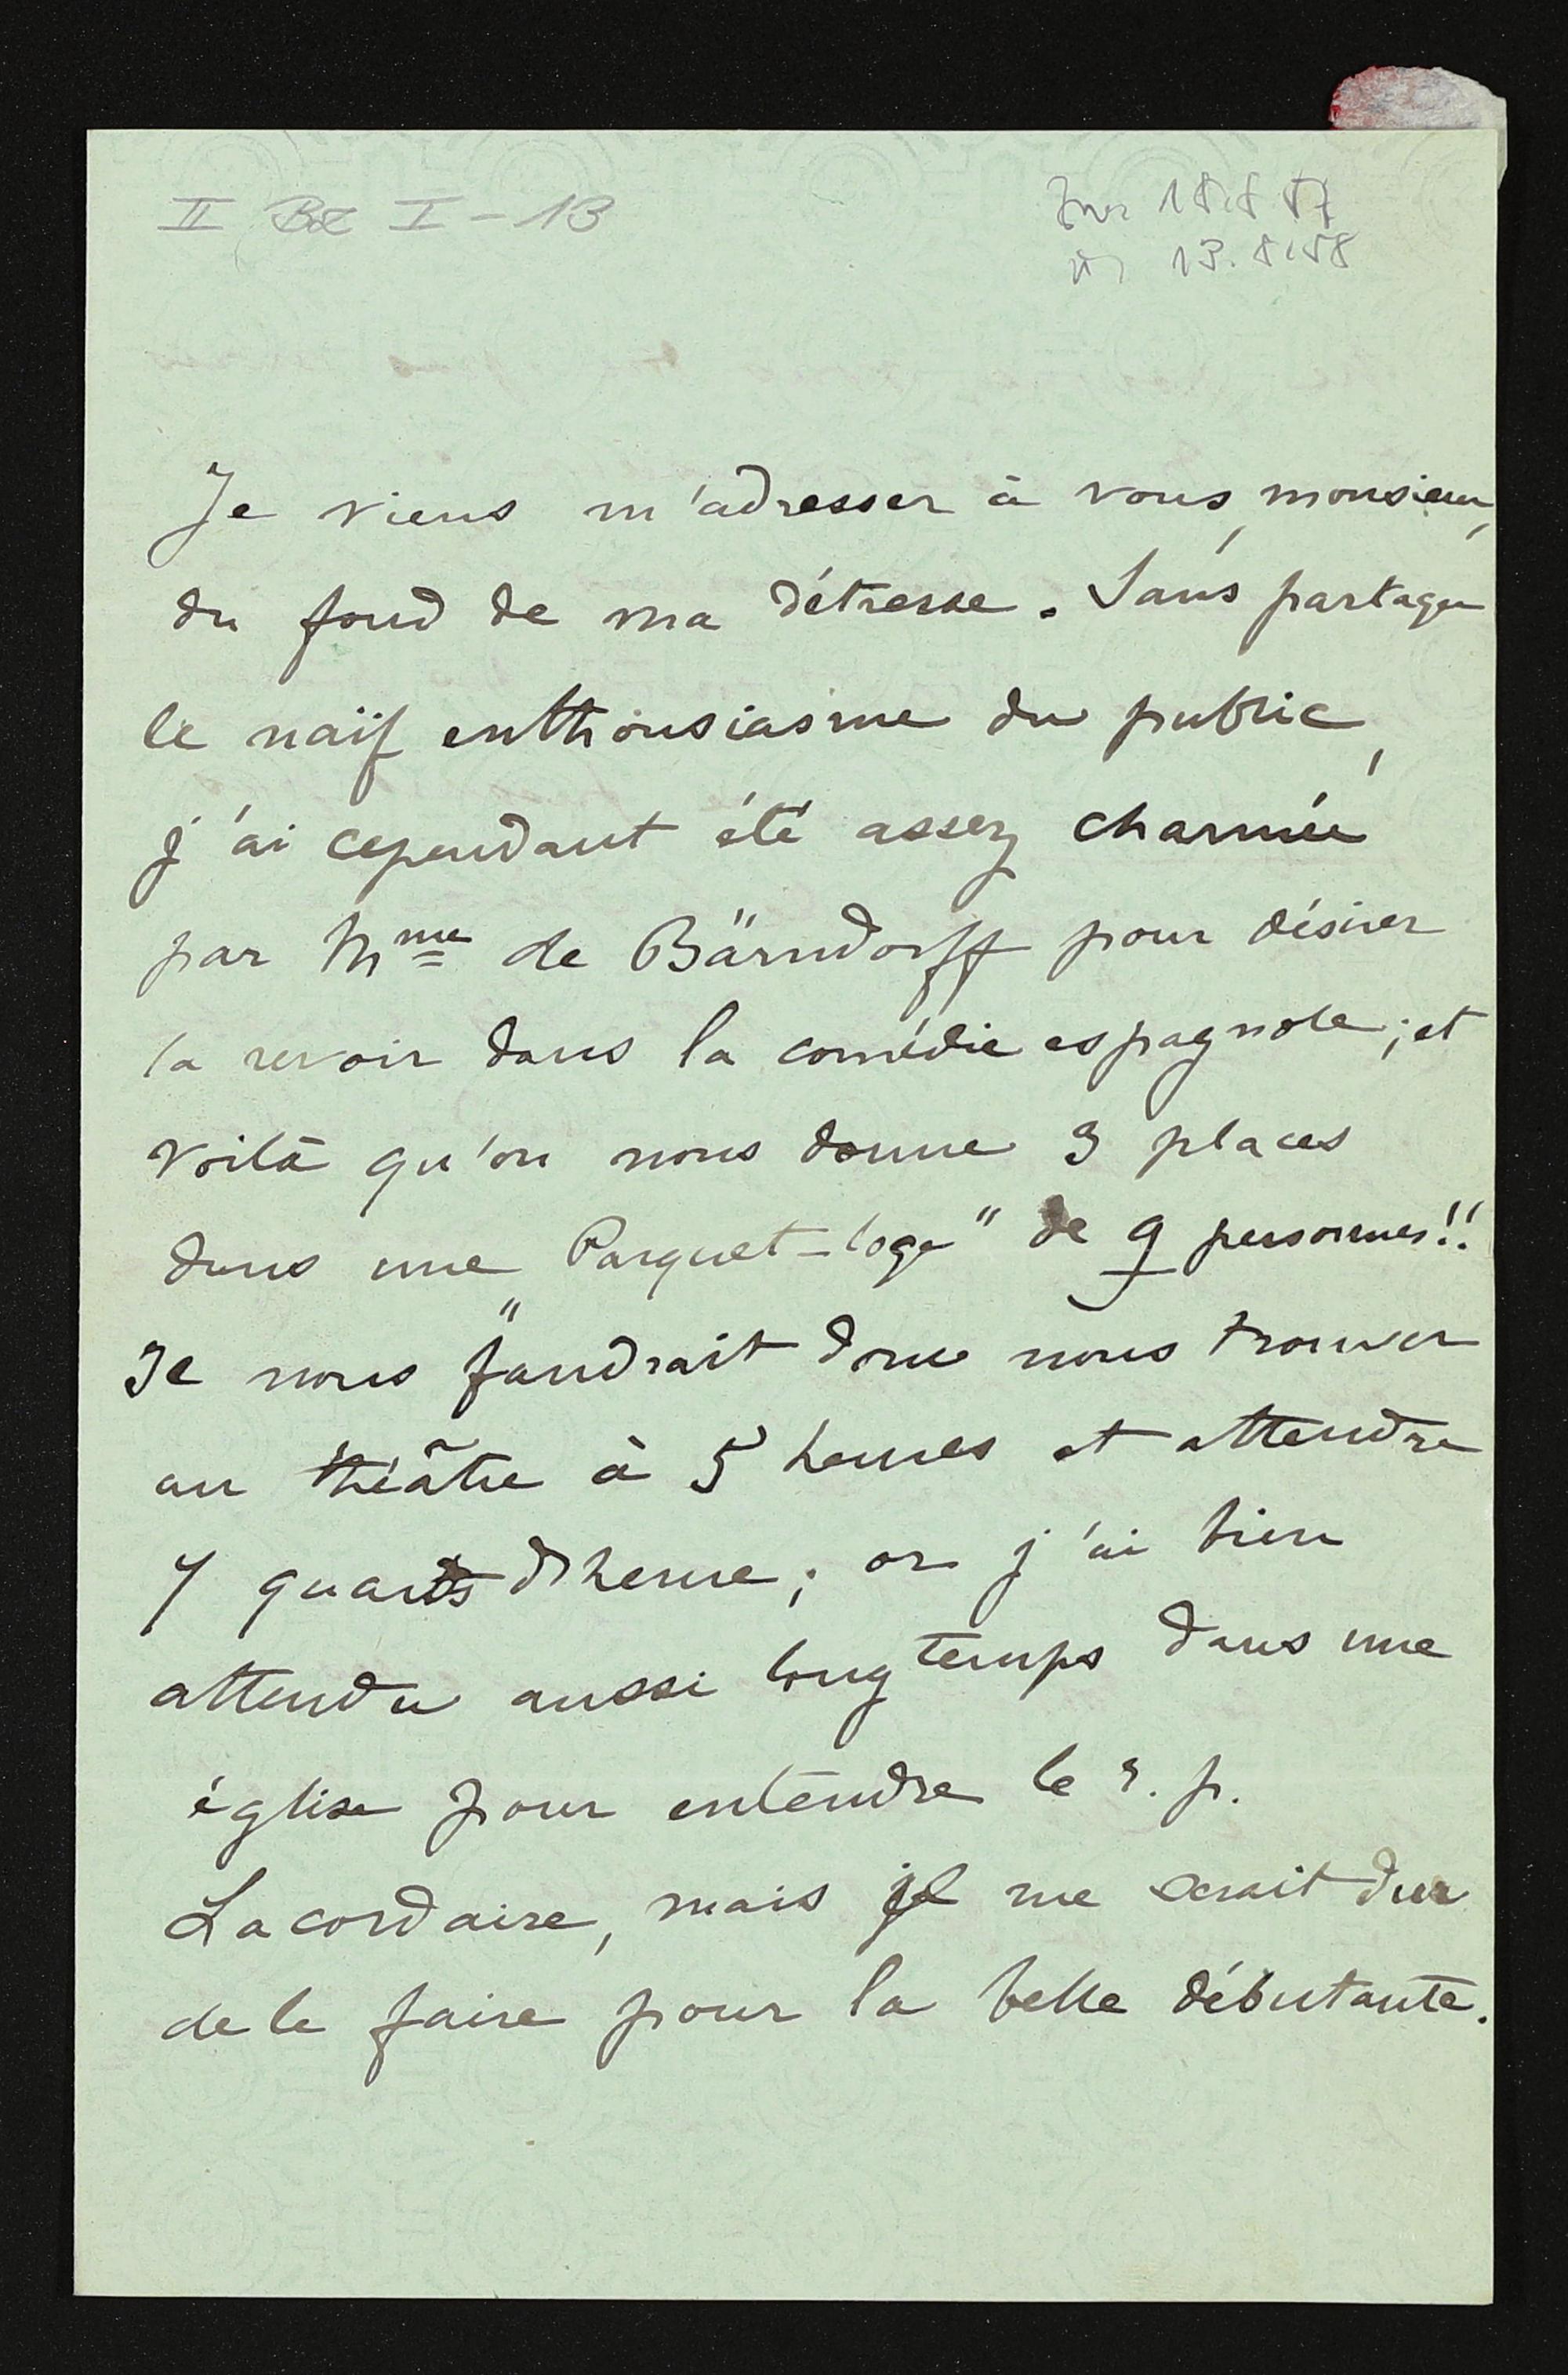 II Bz I - 13
13.8.58
Je viens m'adresser à vous, monsieur,
du fond de ma détresse. Sans partager
le naïf enthousiasme du public,
j'ai cependant été assez charmée
par Mme de Bärndorff pour désirer
la revoir dans la comédie espagnole; et
voilà qu'on nous donne 3 places
dans une „Parquet-loge" de 9 personnes!!
Il nous faudrait donc nous trouver
au théâtre à 5 heures et attendre
7 quarts d'heure; or j'ai bien
attendu aussi longtemps dans une
église pour entendre le r. p.
Lacordaire, mais il me serait dur
de le faire pour la belle débutante.